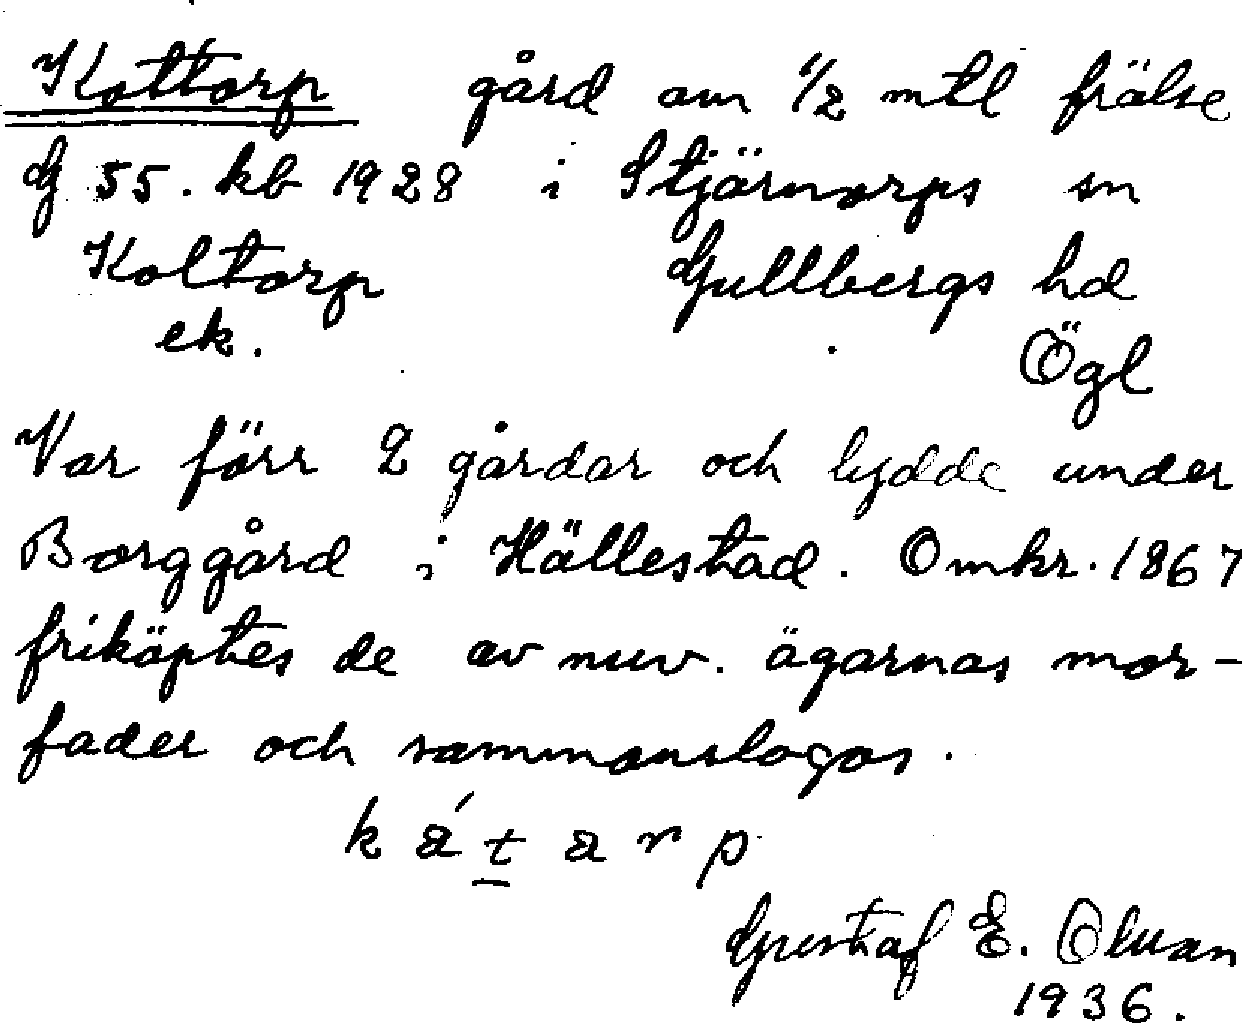 Kottorp gård om 1/2 mtl frälse
G 55. kb 1928 i Stjärnorps sn
Koltorp Gullbergs hd
ek. Ögl
Var förr 2 gårdar och lydde under
Borggård i Hällestad. Omkr. 1867
friköptes de av nuv. ägarnas mor-
fader och sammanslogos.
Gustaf E. Olsson
1936.